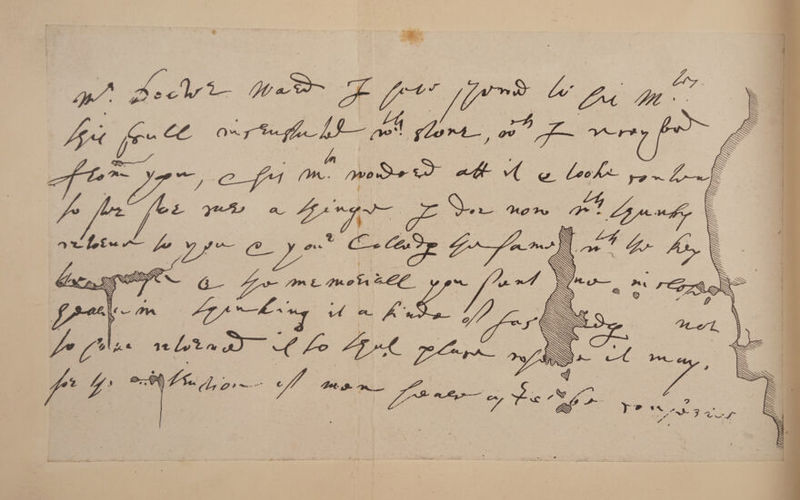 Mr. Doctor Ward I have shewed to his Mty.
this skull incrusted wth stone, wch I receyved
from you, & his Mty wondered att it & looked content
to see soe rare a thinge I doe now wth thanks
returne to you & your Colledge the same wth the key
& the memoriall you sent me inclosed
thinking it a kinde of not
to have returned it to that place where it may,
for the of men hereafter be conserved